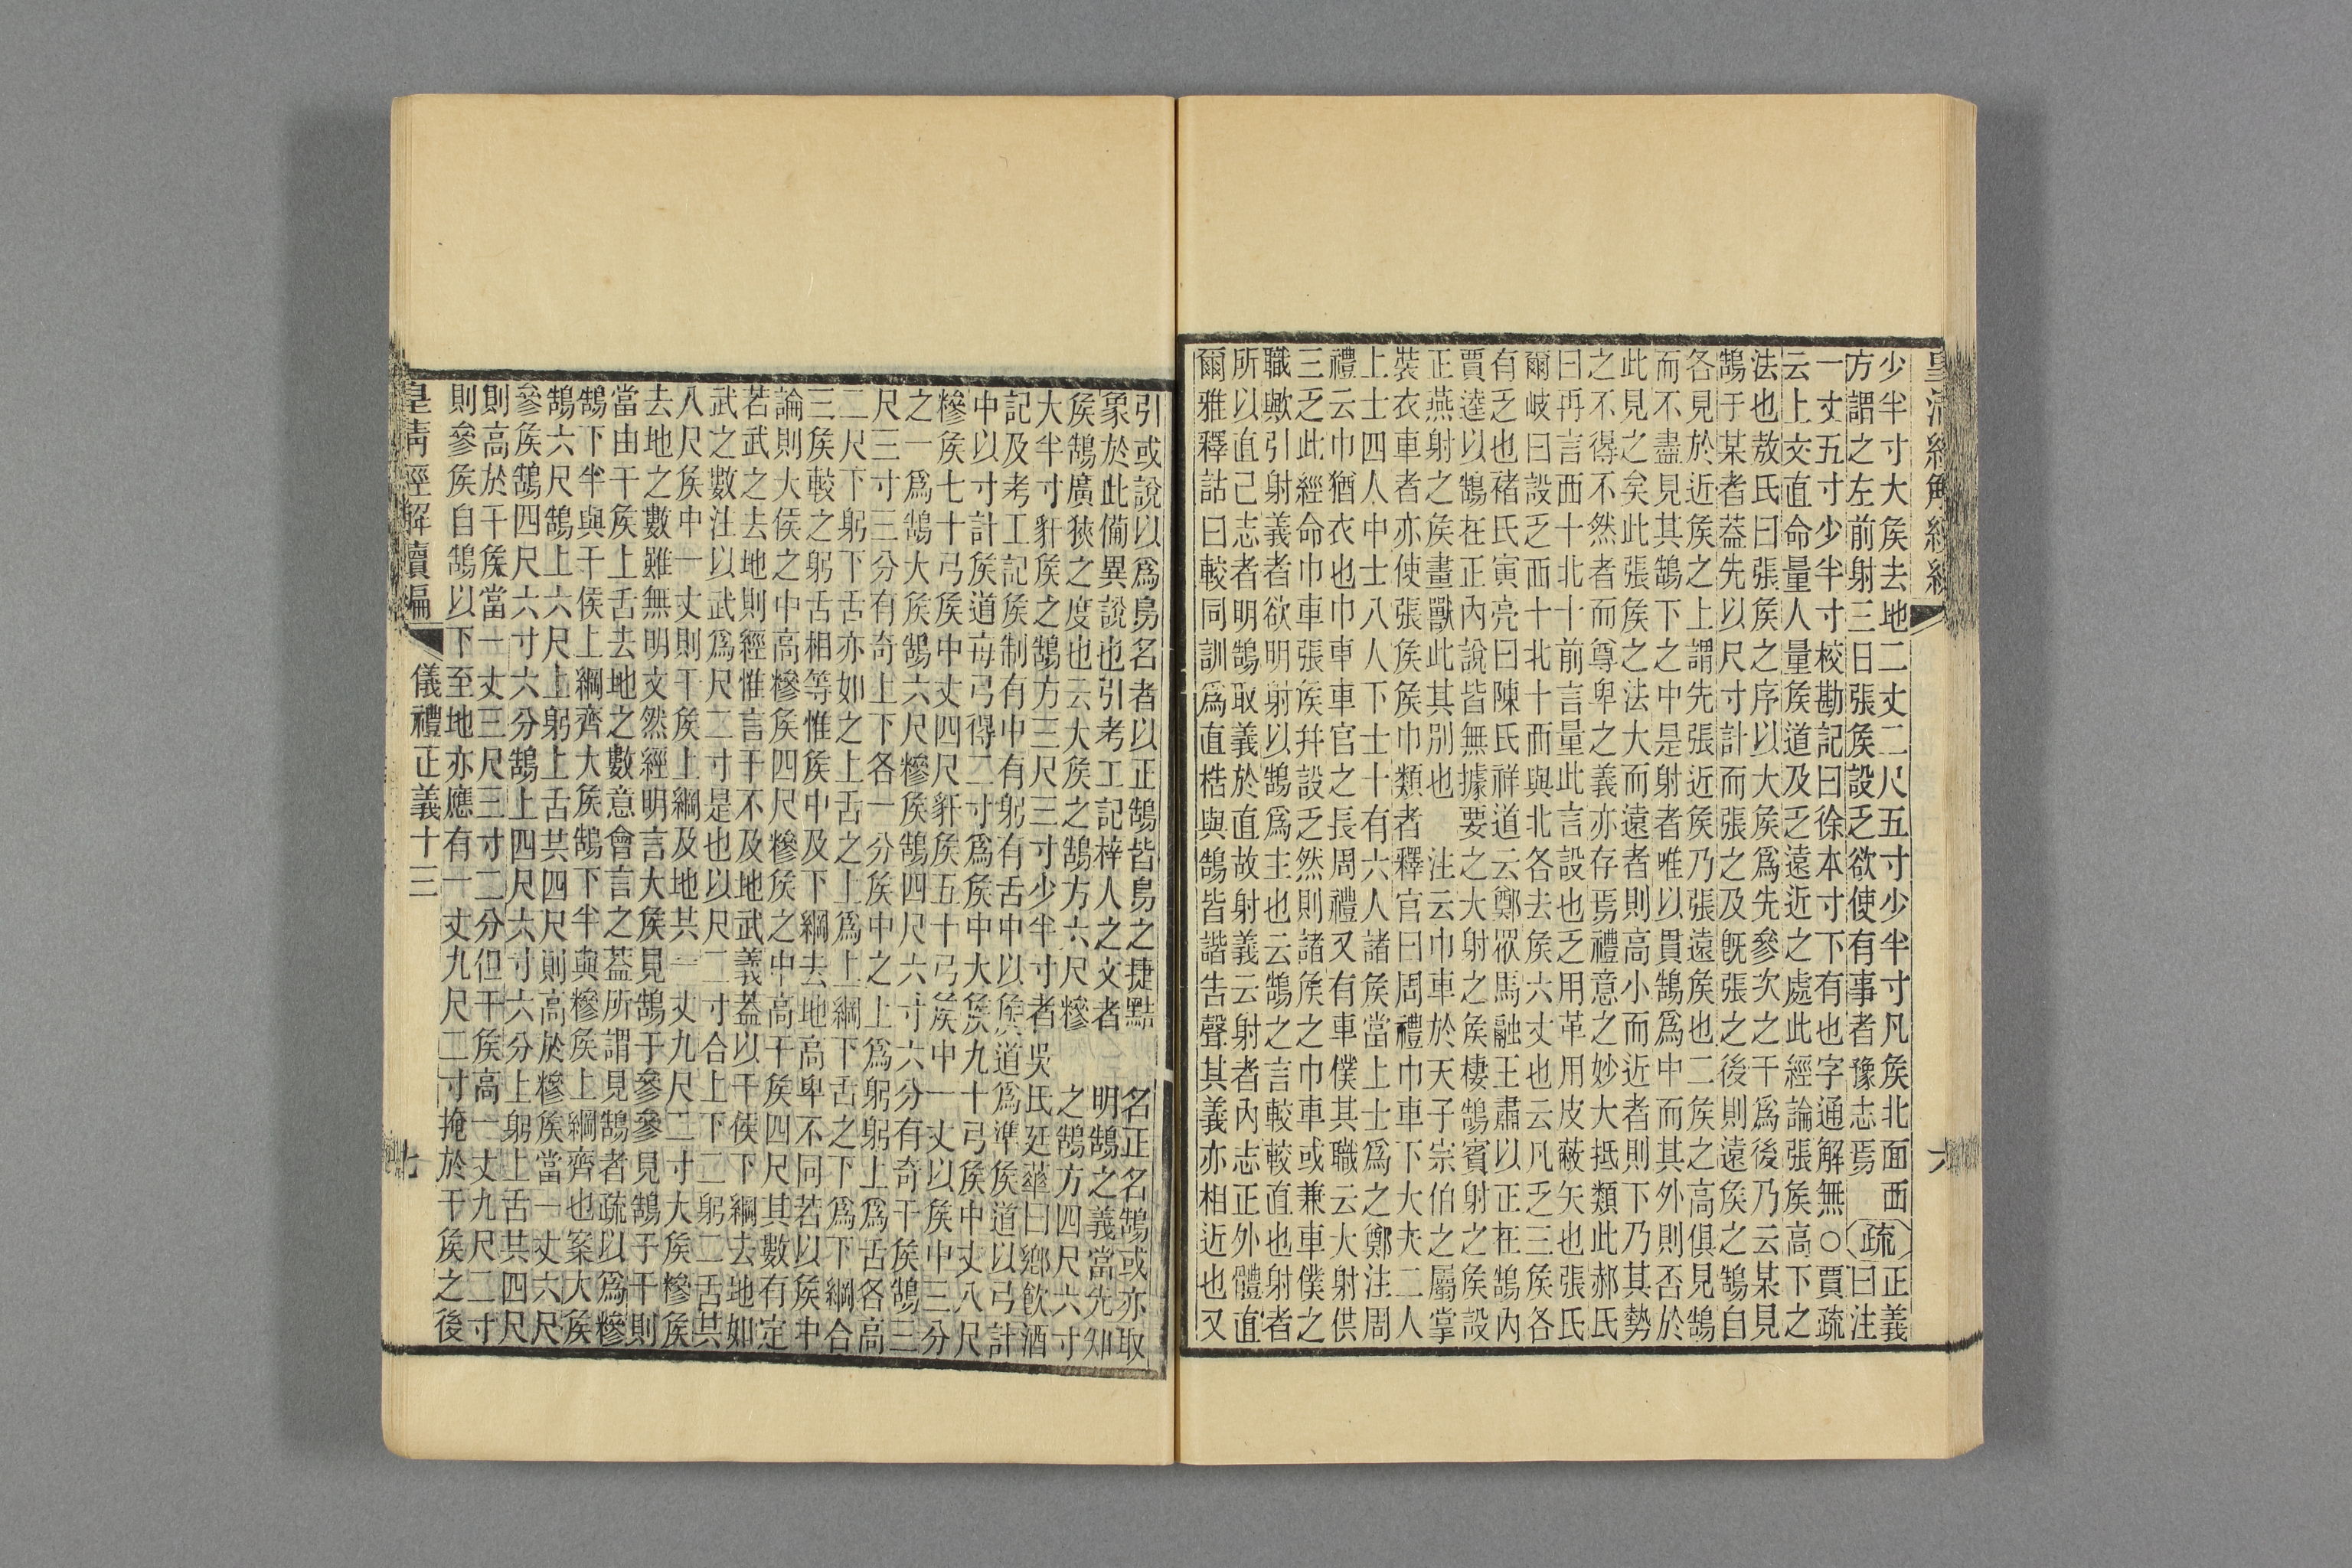 皇清經解續編
六
少半寸大矦去地二丈二尺五寸少半寸凡矦北面西
方謂之左前射三日張矦設乏欲使有事者豫志焉疏正義曰注
一丈五寸少半寸校勘記曰徐本寸下有也字通解無○賈疏
云上文直命量人量矦道及乏遠近之處此經論張矦高下之
法也敖氏曰張矦之序以大矦爲先參次之干爲後乃云某見
鵠于某者葢先以尺寸計而張之及旣張之後則遠矦之鵠自
各見於近矦之上謂先張近矦乃張遠矦也二矦之高俱見鵠
而不盡見其鵠下之中是射者唯以貫鵠爲中而其外則否於
此見之矣此張矦之法大而遠者則高小而近者則下乃其勢
之不得不然者而尊卑之義亦存焉禮意之妙大抵類此郝氏
曰再言西十北十前言量此言設也乏用革用皮蔽矢也張氏
爾岐曰設乏西十北十西與北各去矦六丈也云凡乏三矦各
有乏也褚氏寅亮曰陳氏祥道云鄭眾馬融王肅以正在鵠內
賈逵以鵠在正內說皆無據要之大射之矦棲鵠賓射之矦設
正燕射之矦畫獸此其別也　注云巾車於天子宗伯之屬掌
裝衣車者亦使張矦矦巾類者　釋官曰周禮巾車下大夫二人
上士四人中士八人下士十有六人諸矦當上士爲之鄭注周
禮云巾猶衣也巾車車官之長周禮又有車僕其職云大射供
三乏此經命巾車張矦幷設乏然則諸矦之巾車或兼車僕之
職歟引射義者欲明射以鵠爲主也云鵠之言較較直也射者
所以直己志者明鵠取義於直故射義云射者內志正外體直
爾雅釋詁曰較同訓爲直梏與鵠皆諧告聲其義亦相近也又
引或說以爲鳥名者以正鵠皆鳥之捷黠名正名鵠或亦取
象於此備異說也引考工記梓人之文者明鵠之義當先知
矦鵠廣狹之度也云大矦之鵠方六尺糝之鵠方四尺六寸
大半寸豻矦之鵠方三尺三寸少半寸者吳氏廷華曰鄉飮酒
記及考工記矦制有中有躬有舌中以矦道爲準矦道以弓計
中以寸計矦道每弓得二寸爲矦中大矦九十弓矦中丈八尺
糝矦七十弓矦中丈四尺豻矦五十弓矦中一丈以矦中三分
之一爲鵠大矦鵠六尺糝矦鵠四尺六寸六分有奇干矦鵠三
尺三寸三分有奇上下各一分矦中之上爲躬躬上爲舌各高
二尺下躬下舌亦如之上舌之上爲上綱下舌之下爲下綱合
三矦較之躬舌相等惟矦中及下綱去地高卑不同若以矦中
論則大矦之中高糝矦四尺糝矦之中高干矦四尺其數有定
若武之去地則經惟言干不及地武義葢以干矦下綱去地如
武之數注以武爲尺二寸是也以尺二寸合上下二躬二舌共
八尺矦中一丈則干矦上綱及地共一丈九尺二寸大矦糝矦
去地之數雖無明文然經明言大矦見鵠于參參見鵠于干則
當由干矦上舌去地之數意會言之葢所謂見鵠者疏以爲糝
鵠下半與干矦上綱齊大矦鵠下半與糝矦上綱齊也案大矦
鵠六尺鵠上六尺上躬上舌共四尺則高於糝矦當一丈六尺
參矦鵠四尺六寸六分鵠上四尺六寸六分上躬上舌共四尺
則高於干矦當一丈三尺三寸二分但干矦高一丈九尺二寸
則參矦自鵠以下至地亦應有一丈九尺二寸掩於干矦之後
皇清經解續編
儀禮正義十三
七